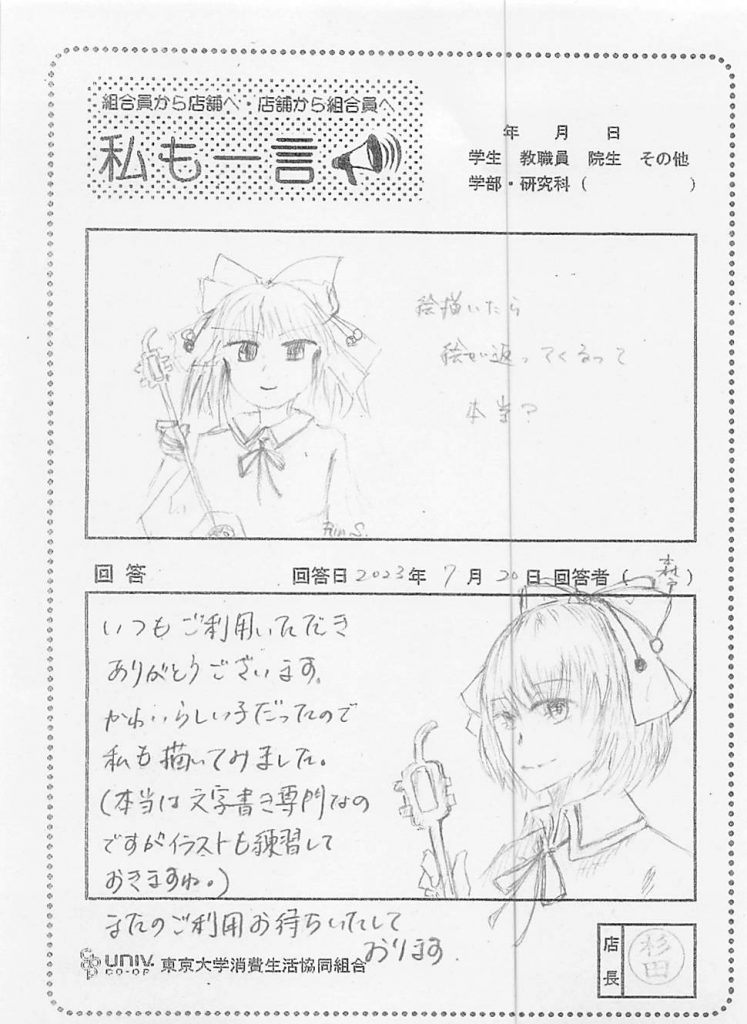 組合員から店舗へ・店舗から組合員へ
私も一言
年 月 日
学生 教職員 院生 その他
学部・研究科（ ）
絵描いたら
絵が返ってくるって
本当?
Rin S.
回答 回答日 2023年 7月 20日 回答者（ ）
いつもご利用いただき
ありがとうございます。
かわいらしい子だったので
私も描いてみました。
(本当は文字書き専門なの
ですがイラストも練習して
おきますね。)
またのご利用お待ちいたして
おります.
UNIV. CO-OP 東京大学消費生活協同組合
店長 杉田